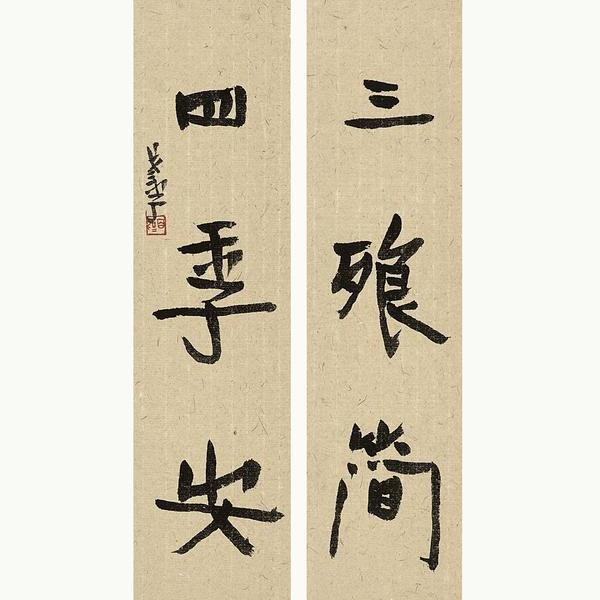 三飱简
四季安